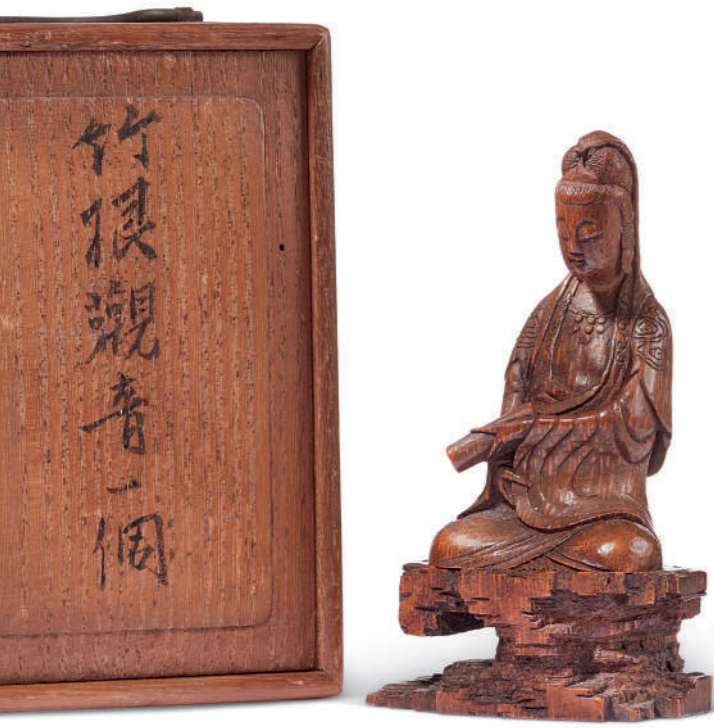 竹根觀音一個